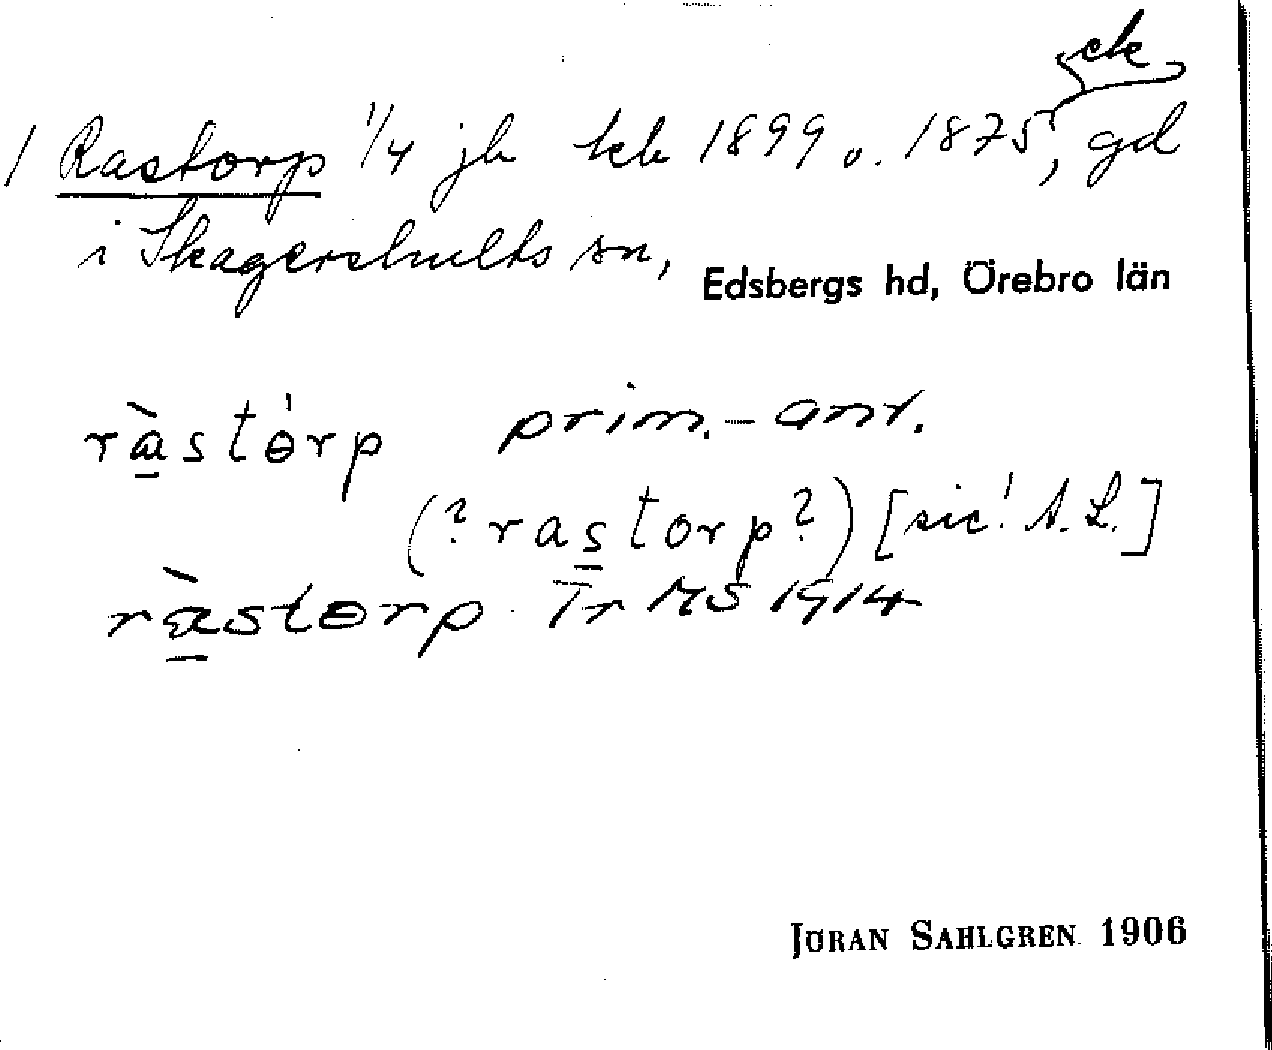 ek
/ Rastorp 1/4 jb kk 1899 o. 1875, gd
i Skagershults sn, Edsbergs hd, Örebro län
ràstɵ́rp prim.-anr.
(? rastorp ?) [sic! A.L.]
ràstɵrp Tr MS 1914
JÖRAN SAHLGREN 1906